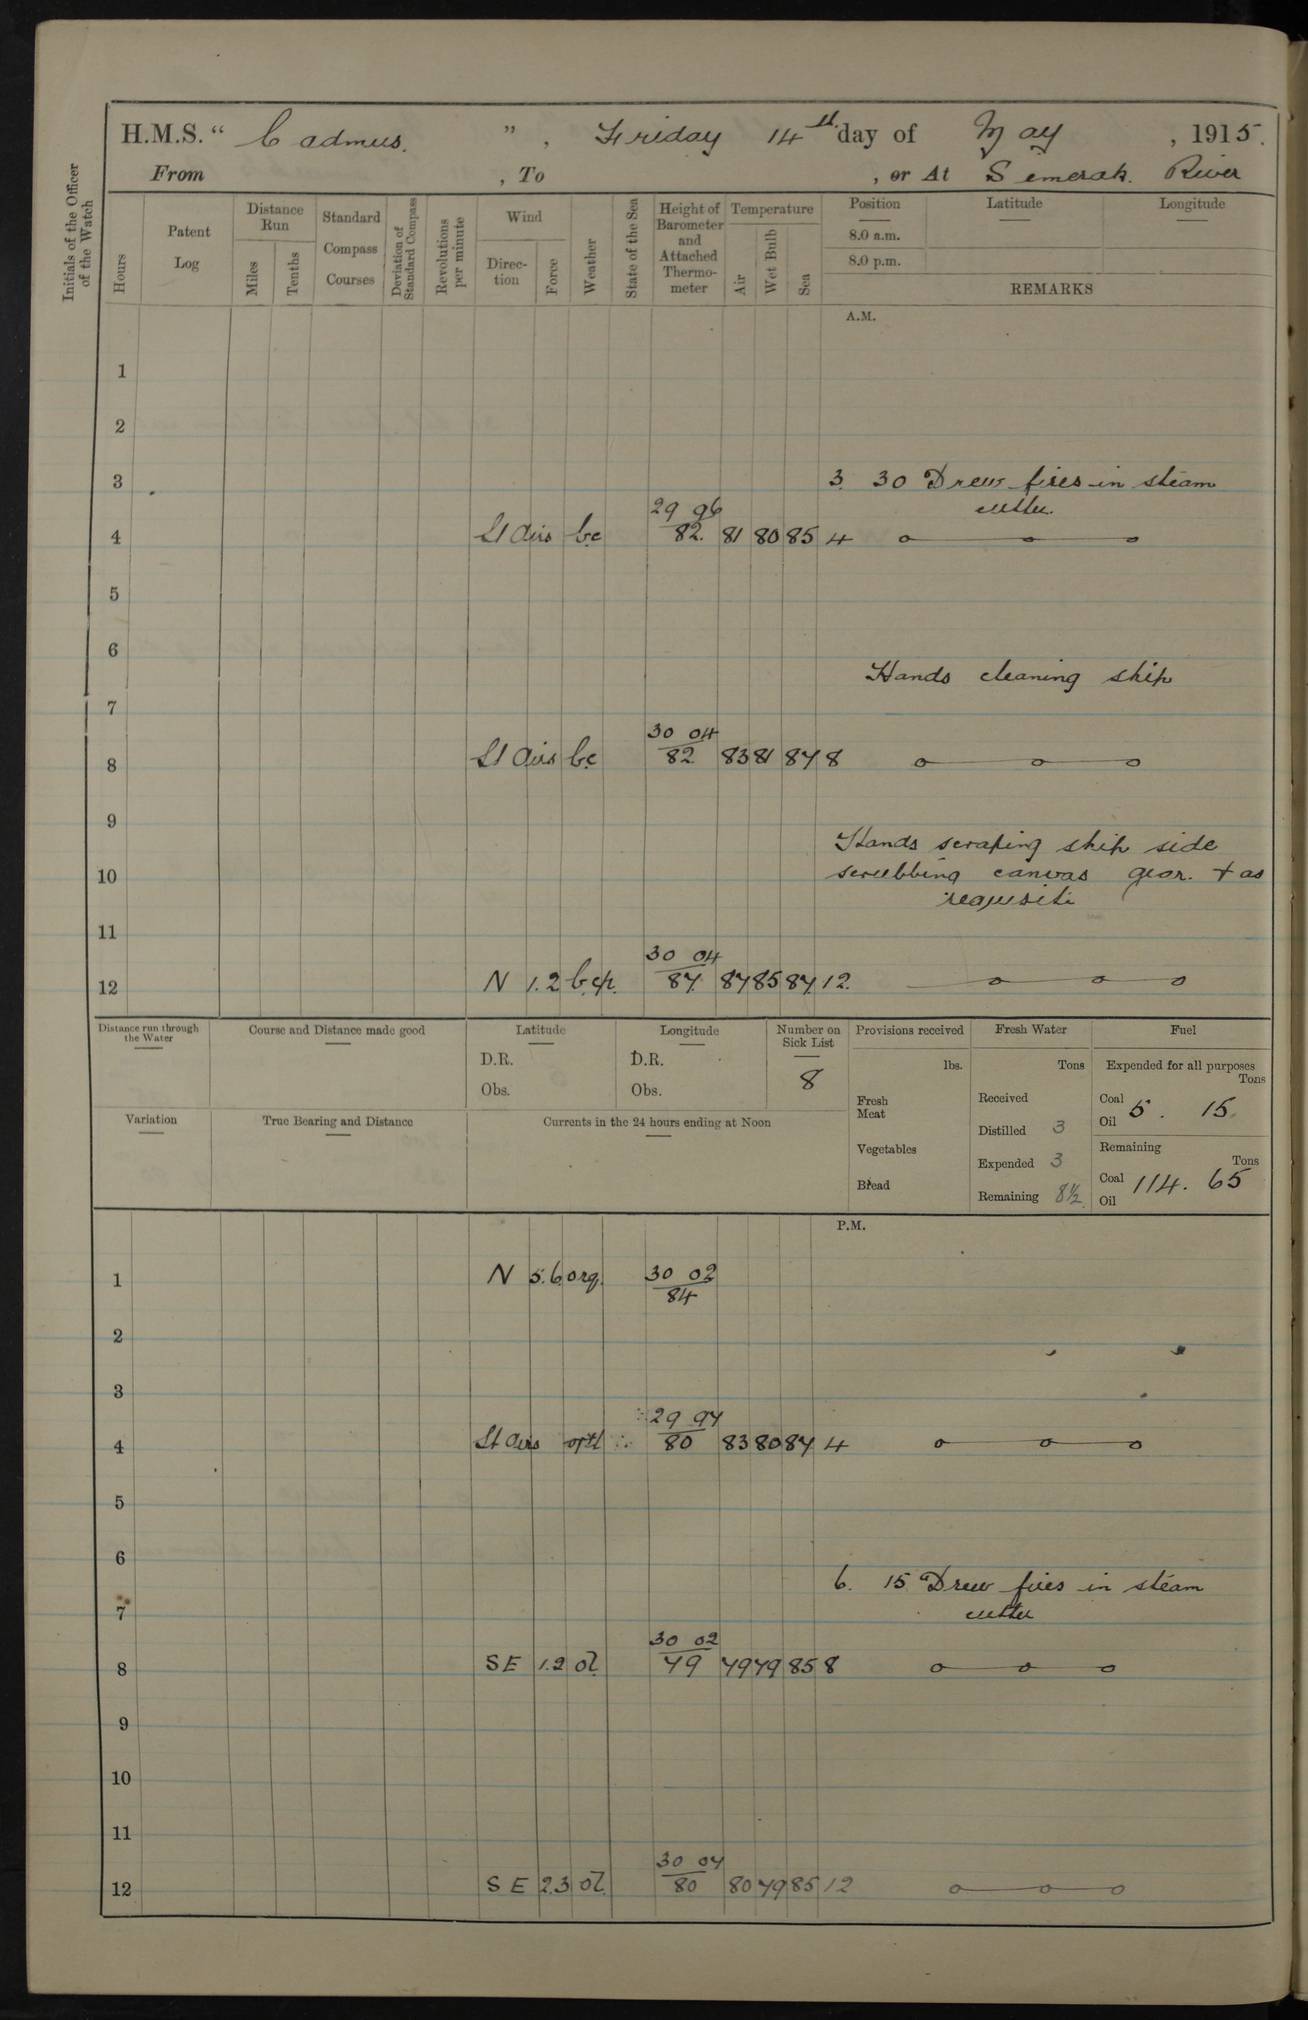 H.M.S. “ Cadmus. ” , Friday 14th day of May , 1915.
From , To , or At Semerak. River
Initials of the Officer of the Watch
Hours
Patent Log
Distance Run
Miles
Tenths
Standard Compass Courses
Deviation of Standard Compass
Revolutions per minute
Wind
Direc-tion
Force
Weather
State of the Sea
Height of Barometer and Attached Thermo-meter
Temperature
Air
Wet Bulb
Sea
Position
8.0 a.m.
8.0 p.m.
Latitude
Longitude
REMARKS
A.M.
1
2
3 3. 30 Drew fires in steam
cutter.
29 96
4 Lt Airs bc 82. 81 80 85 4
5
6
Hands cleaning ship
7
30 04
8 Lt Airs b.c 82. 83 81 87 8
9
Hands scraping ship side
10 scrubbing canvas gear. + as
requisite
11
30 04
12 N 1.2 b.c.p. 87. 87 85 87 12.
Distance run through the Water
Course and Distance made good
Latitude
D.R.
Obs.
Longitude
D.R.
Obs.
Number on Sick List
8
Provisions received
lbs.
Fresh Meat
Vegetables
Bread
Fresh Water
Tons
Received
Distilled 3
Expended 3
Remaining 8½
Fuel
Expended for all purposes
Tons
Coal 5. 15.
Oil
Remaining
Tons
Coal 114. 65
Oil
Variation
True Bearing and Distance
Currents in the 24 hours ending at Noon
P.M.
1 N 5.6 orq. 30 02
84
2
3
29 97
4 Lt Airs 80 83 80 87 4
5
6
6. 15 Drew fires in steam
7 cutter
30 02
8 SE 1.2 ol. 79 79 79 85 8
9
10
11
30 04
12 SE 2.3 ol. 80 80 79 85 12